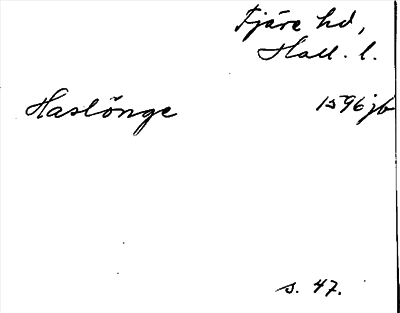 Fjäre hd,
Hall. l.
Haslönge 1596 jb
s. 47.